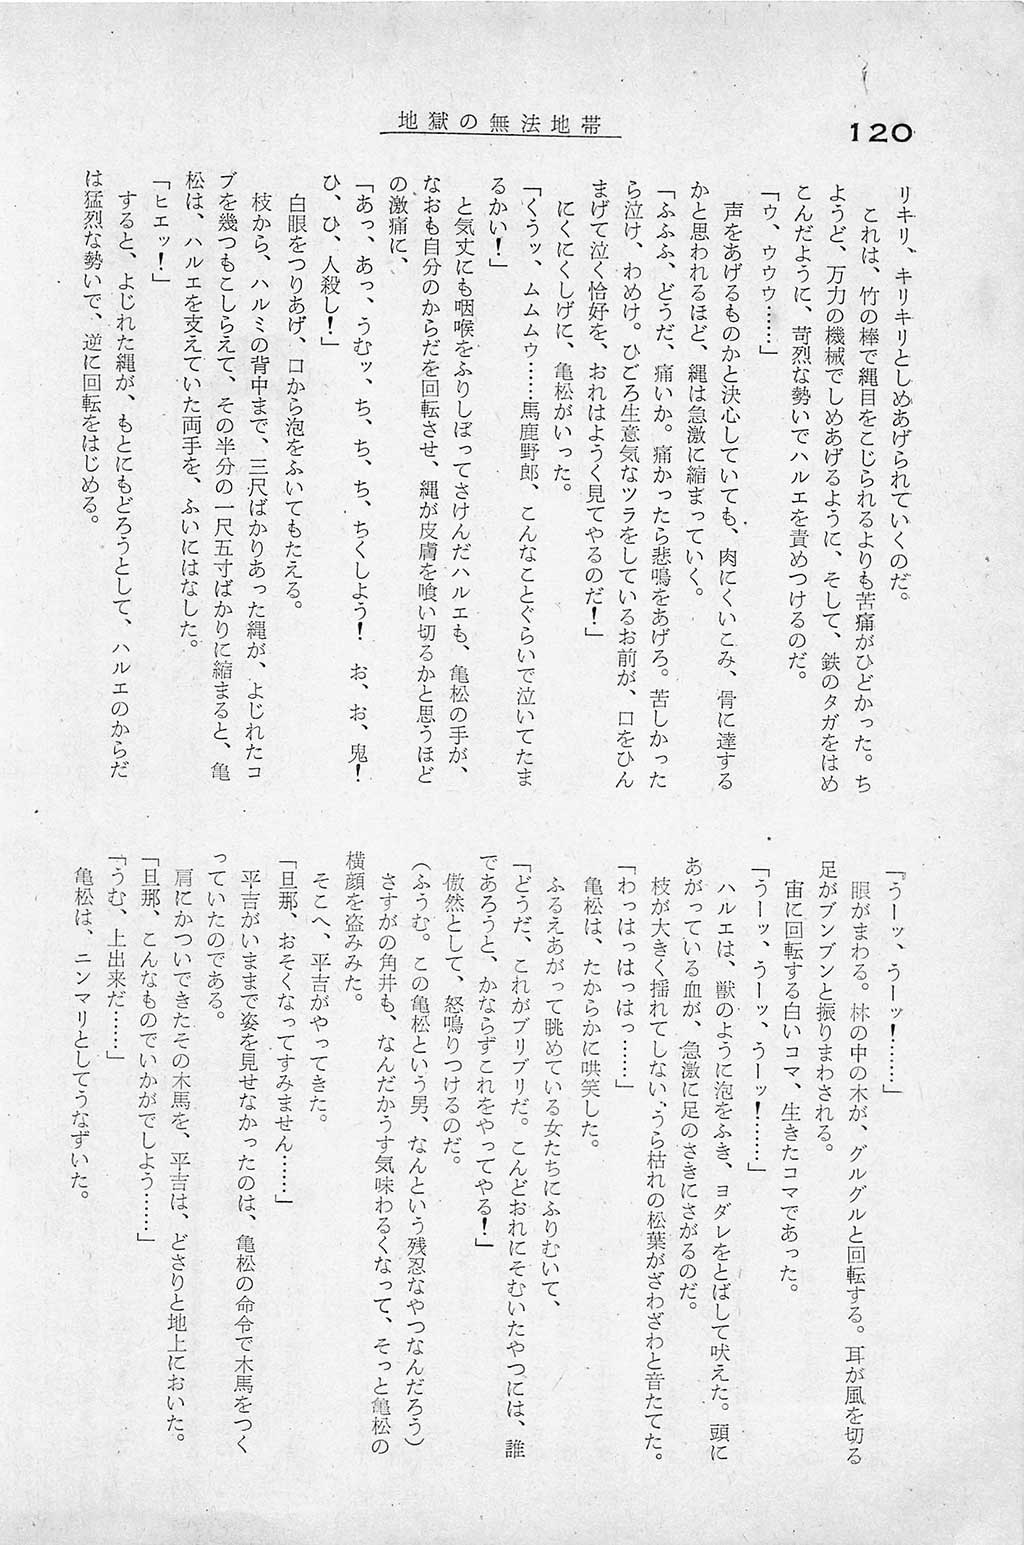 地獄の無法地帯
120
リキリ、キリキリとしめあげられていくのだ。
これは、竹の棒で縄目をこじられるよりも苦痛がひどかった。ち
ようど、万力の機械でしめあげるように、そして、鉄のタガをはめ
こんだように、苛烈な勢いでハルエを責めつけるのだ。
「ウ、ウウウ……」
声をあげるものかと決心していても、肉にくいこみ、骨に達する
かと思われるほど、縄は急激に縮まっていく。
「ふふふ、どうだ、痛いか。痛かったら悲鳴をあげろ。苦しかった
ら泣け、わめけ。ひごろ生意気なツラをしているお前が、口をひん
まげて泣く恰好を、おれはようく見てやるのだ！」
にくにくしげに、亀松がいった。
「くうッ、ムムムウ……馬鹿野郎、こんなことぐらいで泣いてたま
るかい！」
と気丈にも咽喉をふりしぼってさけんだハルエも、亀松の手が、
なおも自分のからだを回転させ、縄が皮膚を喰い切るかと思うほど
の激痛に、
「あっ、あっ、うむッ、ち、ち、ち、ちくしよう！　お、お、鬼！
ひ、ひ、人殺し！」
白眼をつりあげ、口から泡をふいてもたえる。
枝から、ハルミの背中まで、三尺ばかりあった縄が、よじれたコ
ブを幾つもこしらえて、その半分の一尺五寸ばかりに縮まると、亀
松は、ハルエを支えていた両手を、ふいにはなした。
「ヒエッ！」
すると、よじれた縄が、もとにもどろうとして、ハルエのからだ
は猛烈な勢いで、逆に回転をはじめる。
『うーッ、うーッ！……」
眼がまわる。林の中の木が、グルグルと回転する。耳が風を切る
足がブンブンと振りまわされる。
宙に回転する白いコマ、生きたコマであった。
「うーッ、うーッ、うーッ！……」
ハルエは、獣のように泡をふき、ヨダレをとばして吠えた。頭に
あがっている血が、急激に足のさきにさがるのだ。
枝が大きく揺れてしない、うら枯れの松葉がざわざわと音たてた。
「わっはっはっはっ……」
亀松は、たからかに哄笑した。
ふるえあがって眺めている女たちにふりむいて、
「どうだ、これがブリブリだ。こんどおれにそむいたやつには、誰
であろうと、かならずこれをやってやる！」
傲然として、怒鳴りつけるのだ。
（ふうむ。この亀松という男、なんという残忍なやつなんだろう）
さすがの角井も、なんだかうす気味わるくなって、そっと亀松の
横顔を盗みみた。
そこへ、平吉がやってきた。
「旦那、おそくなってすみません……」
平吉がいままで姿を見せなかったのは、亀松の命令で木馬をつく
っていたのである。
肩にかついできたその木馬を、平吉は、どさりと地上においた。
「旦那、こんなものでいかがでしよう……」
「うむ、上出来だ……」
亀松は、ニンマリとしてうなずいた。